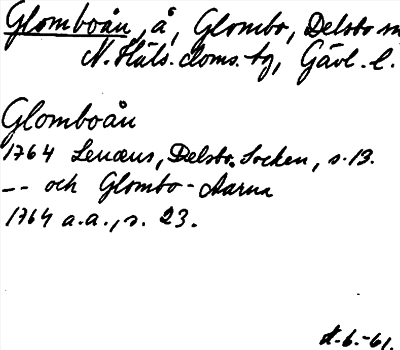 Glomboån, å, Glombo, Delsbo
N. Häls. doms. tg, Gävl. l.
Glomboån
1764 Lenæus, Delsbo Socken, s. 13.
-- och Glombo-Aarna
1764 a.a., s. 23.